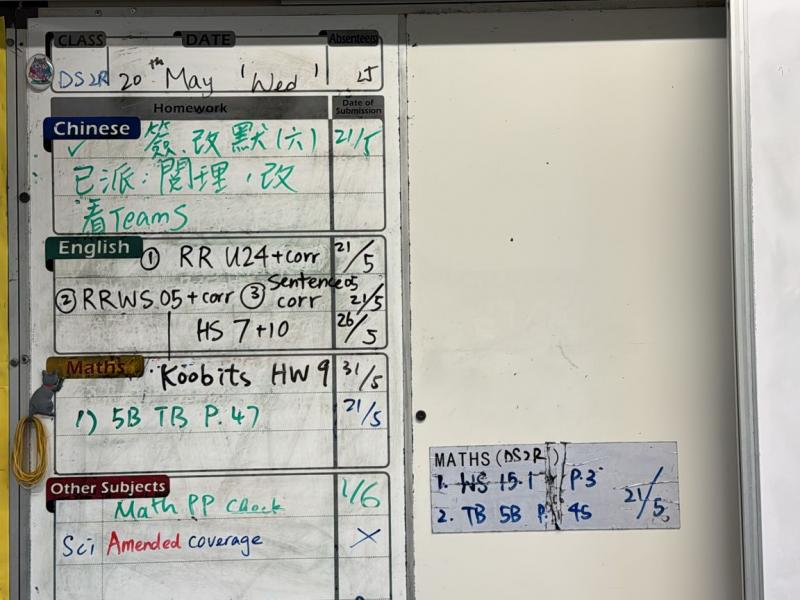 CLASS DATE Absentees
DS2R 20th May 'Wed' 25
Homework Date of Submission
Chinese
✓ 簽.改 默(六) 21/5
已派:閱理,改
看Teams
English
① RR U24+corr 21/5
② RRWS 05+corr ③ Sentence05 corr 21/5
HS 7+10 26/5
Maths
Koobits HW 9 31/5
1) 5B TB P.47 21/5
Other Subjects
Math PP check 1/6
Sci Amended coverage ×
MATHS (DS2R)
1. WS 15.1 P.3
2. TB 5B P. 45 21/5